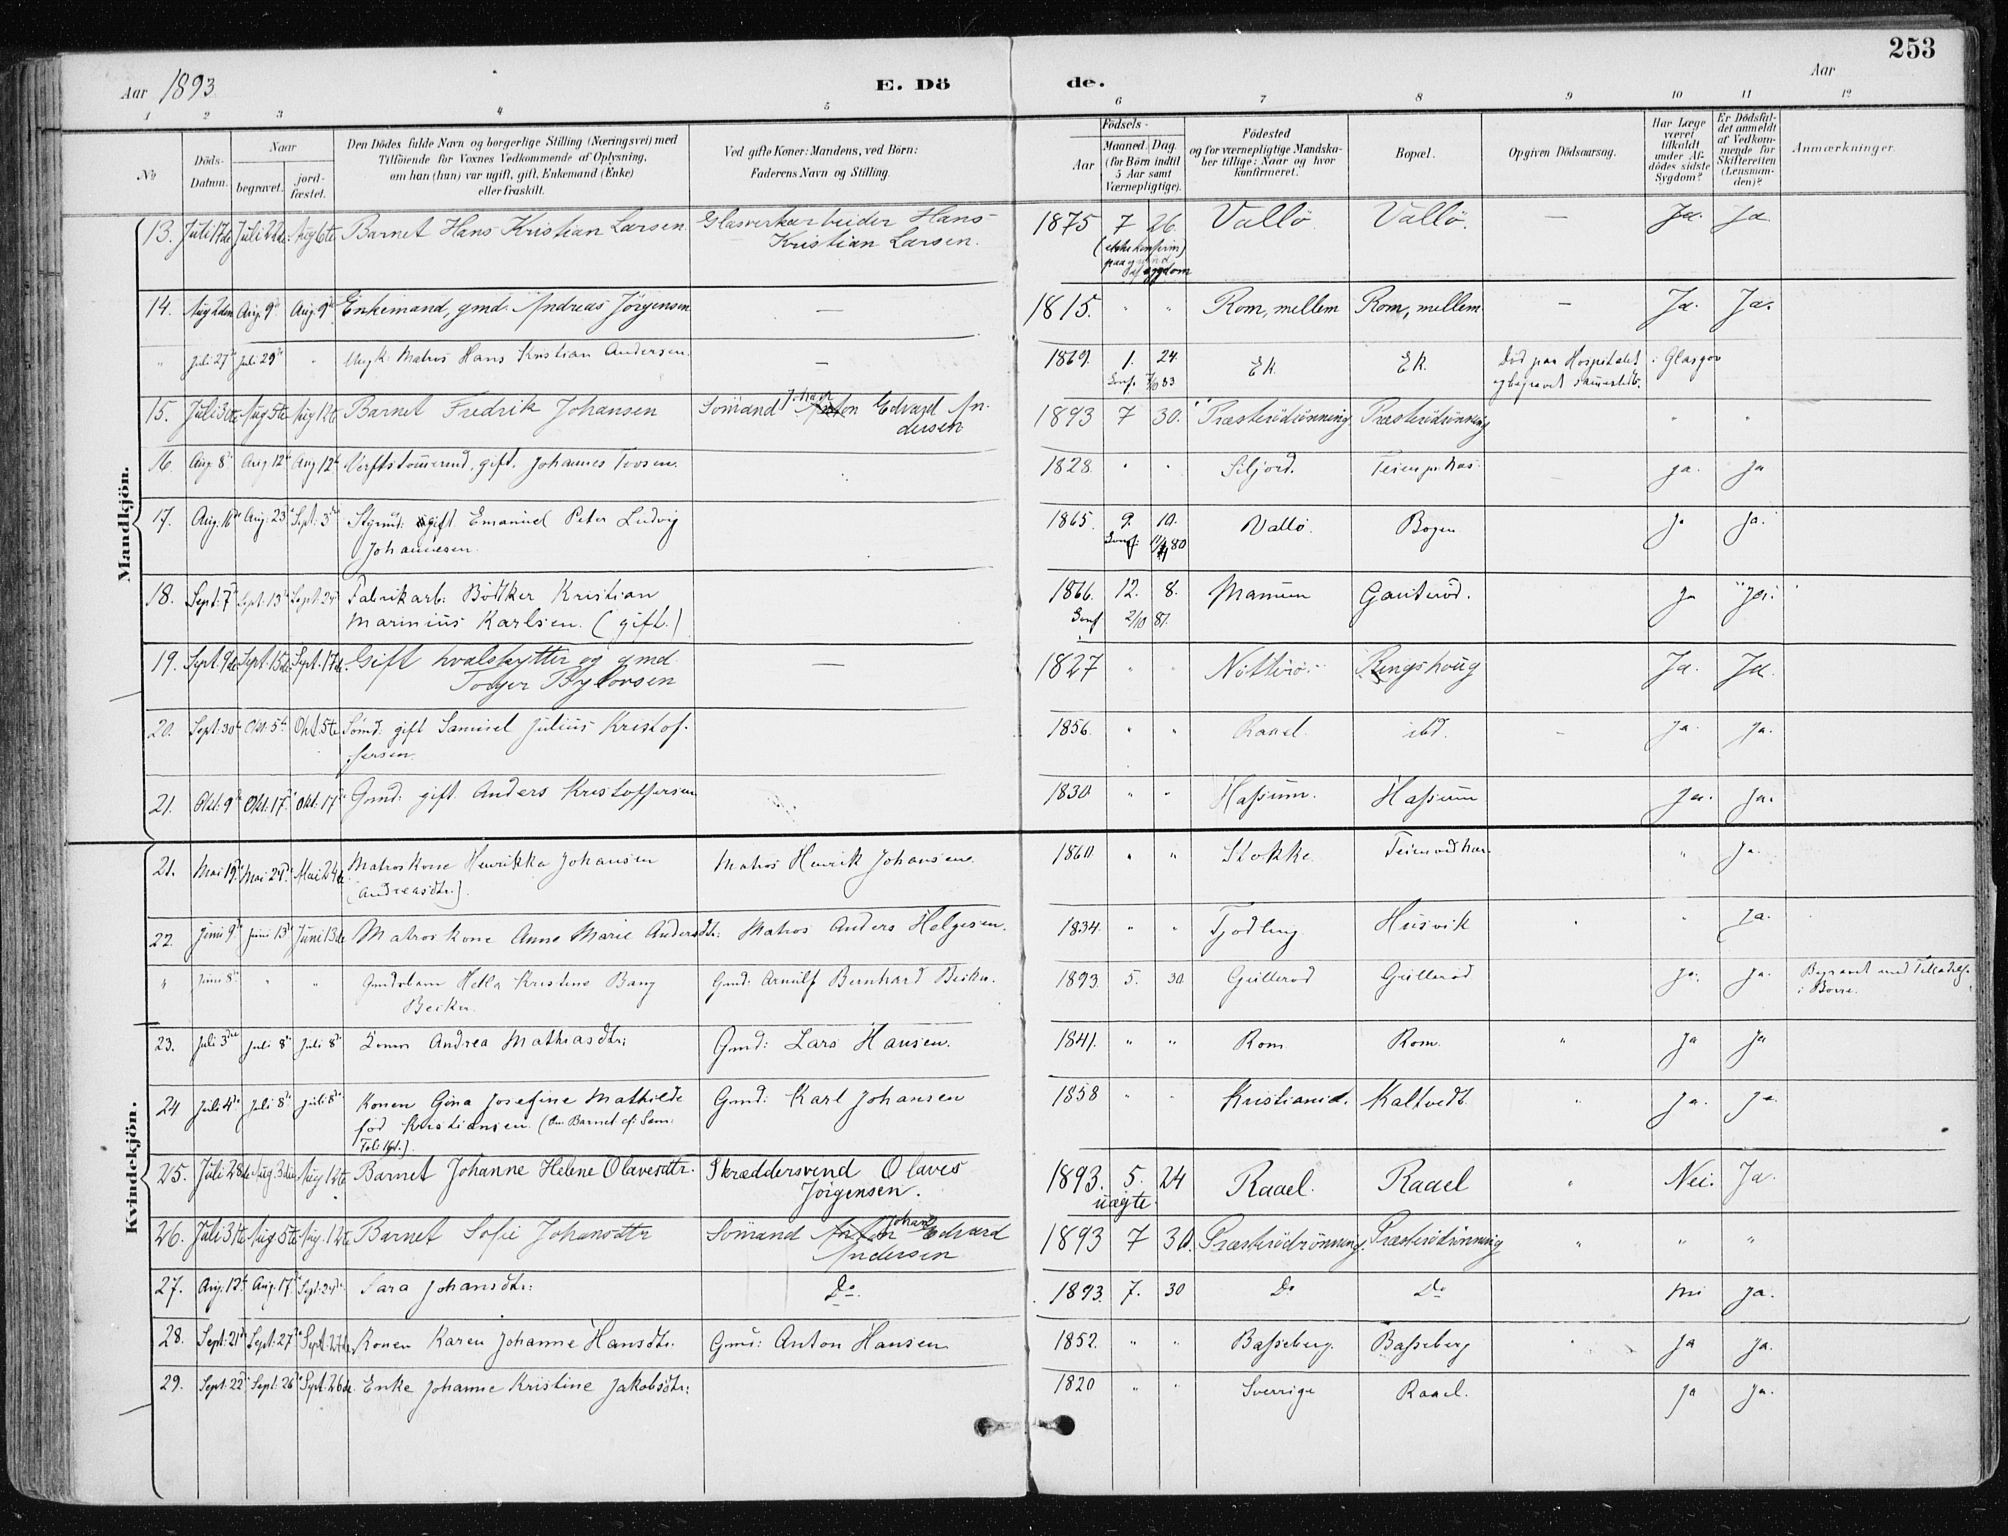 253
Aar 1893
E. Dö de.
Aar
1 2 3 4 5 6 7 8 9 10 11 12
No
Döds-Datum.
Naar
begravet.
jord-fæstet.
Den Dödes fulde Navn og borgerlige Stilling (Næringsvei) med
Tilföiende for Voxnes Vedkommende af Oplysning,
om han (hun) var ugift, gift, Enkemand (Enke)
eller fraskilt.
Ved gifte Koner: Mandens, ved Börn:
Faderens Navn og Stilling.
Födsels-
Aar
Maaned. Dag.
(for Börn indtil
5 Aar samt
Værnepligtige).
Födested
og for værnepligtige Mandska-
ber tillige: Naar og hvor
konfirmeret.
Bopæl.
Opgiven Dödsaarsag.
Har Læge
været
tilkaldt
under Af-
dödes sidste
Sygdom?
Er Dödsfal-
det anmeldt
af Vedkom-
mende for
Skifteretten
(Lensman-
den)?
Anmærkninger.
Mandkjön.
13. Juli 17de Juli 22de Aug 6te Barnet Hans Kristian Larsen Glasverkarbeider Hans 1875 7 26. Vallö. Vallö. — Ja. Ja.
Kristian Larsen.
(ikke konfirm.
paa grund
af sygdom
14. Aug 2den Aug. 9de Aug. 9de Enkemand, gmd. Andreas Jörgensen — 1815. " " Rom, mellem Rom, mellem — Ja. Ja.
" Juli 27de Juli 29de " Ungk. Matros Hans Kristian Andersen. — 1869. 1. 24. Ek. Ek. Död paa Hospitalet i Glasgov
Conf. 83 og begravet sammesteds.
15. Juli 30te Aug 5te Aug 12te Barnet Fredrik Johansen Sömand Johan Edvard An- 1893 7 30. Præsterödrönning Præsterödrönning " "
dersen
16. Aug. 8de Aug 12te Aug 12te Verftstömmermd. gift. Johannes Tovsen. 1828. " " Siljord. Ja. Ja
17. Aug. 16de Aug. 23de Sept. 3de Styrmd: gift Emanuel Peter Ludvig 1865. 9. 10. Vallö. Bogen Ja Ja.
Johannesen. Conf. 80
18. Sept. 7de Sept. 13de Sept. 24de Fabrikarb. Bötker Kristian 1866. 12. 8. Manum Gauteröd. Ja Ja.
Marinius Karlsen. (gift.) Conf 2/10 81.
19. Sept. 9de Sept. 15de Sept. 17de. Gift hvalskytter og gmd. — 1827 " " Nötterö. Ringshoug Ja. Ja.
20. Sept. 30te Okt. 5te Okt. 5te Sömd: gift Samuel Julius Kristof- 1856. " " Raael. ibd. — Ja. Ja.
fersen.
21. Okt. 9de Okt. 17de Okt. 17de Gmd: gift Anders Kristoffersen 1830. " " Hassum. Hassum Ja. Ja.
Kvindekjön.
21. Mai 19de Mai 24de Mai 24de Matroskone Henrikka Johansen Matros Henrik Johansen. 1860. " " Stokke. " Ja.
(Andreasdtr.)
22. Juni 9de Juni 13de Juni 13de Matroskone Anne Marie Andersdtr. Matros Anders Helgesen. 1834. " " Tjodling. Husvik " " Ja.
" Juni 8de " " Gmdsbarn Helka Kristine Bang Gmd: Arnulf Bernhard Beiker. 1893. 5. 30. Gulleröd Gulleröd Ja. Ja. Begravet med Tilladelse
Beiker. i Borre.
23. Juli 3die Juli 8de Juli 8de Konen Andrea Mathiasdtr: Gmd: Lars Hansen. 1841. " " Rom Rom " Ja Ja
24 Juli 4de Juli 8de Juli 8de Konen Gina Josefine Mathilde Gmd: Karl Johansen 1858 " " Kristiania. Kaltvedt. " Ja. Ja.
föd Kristiansen.
25. Juli 28de Aug. 3die Aug 12te Barnet Johanne Helene Olavesdtr. Skræddersvend Olaves 1893. 5. 24 Raael. Raael " Nei. Ja.
Jörgensen. uægte
26. Juli 31te Aug 5te Aug. 12te Barnet Sofie Johansdtr Sömand Johan Edvard 1893 7 30. Præsterödrönning. Præsterödrönning " " "
Andersen
27. Aug. 12te Aug. 17de Sept. 24de Sara Johansdtr: Do. 1893. 7. 30 Do Do Nei Ja.
28. Sept. 21de Sept. 27de Sept. 27de Konen Karen Johanne Hansdtr. Gmd: Anton Hansen 1852. " " Basseberg. Basseberg " Ja Ja.
29. Sept. 22de Sept. 26de Sept. 26de. Enke Johanne Kristine Jakobsdtr: 1820 " " Sverrige Raael. Ja Ja.